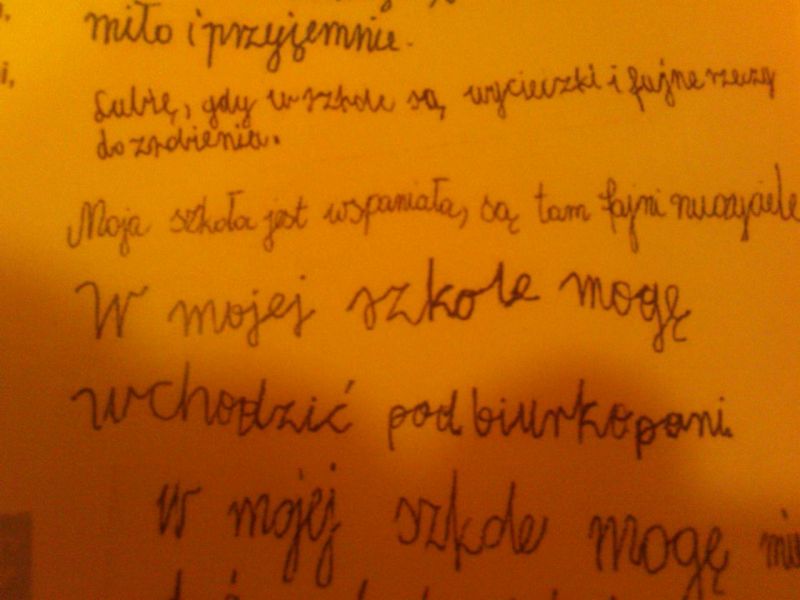 miło i przyjemnie.
Lubię, gdy w szkole są wycieczki i fajne rzeczy
do zrobienia.
Moja szkoła jest wspaniała, są tam fajni nuczyciele
W mojej szkole mogę
wchodzić pod biurko pani.
W mojej szkole mogę